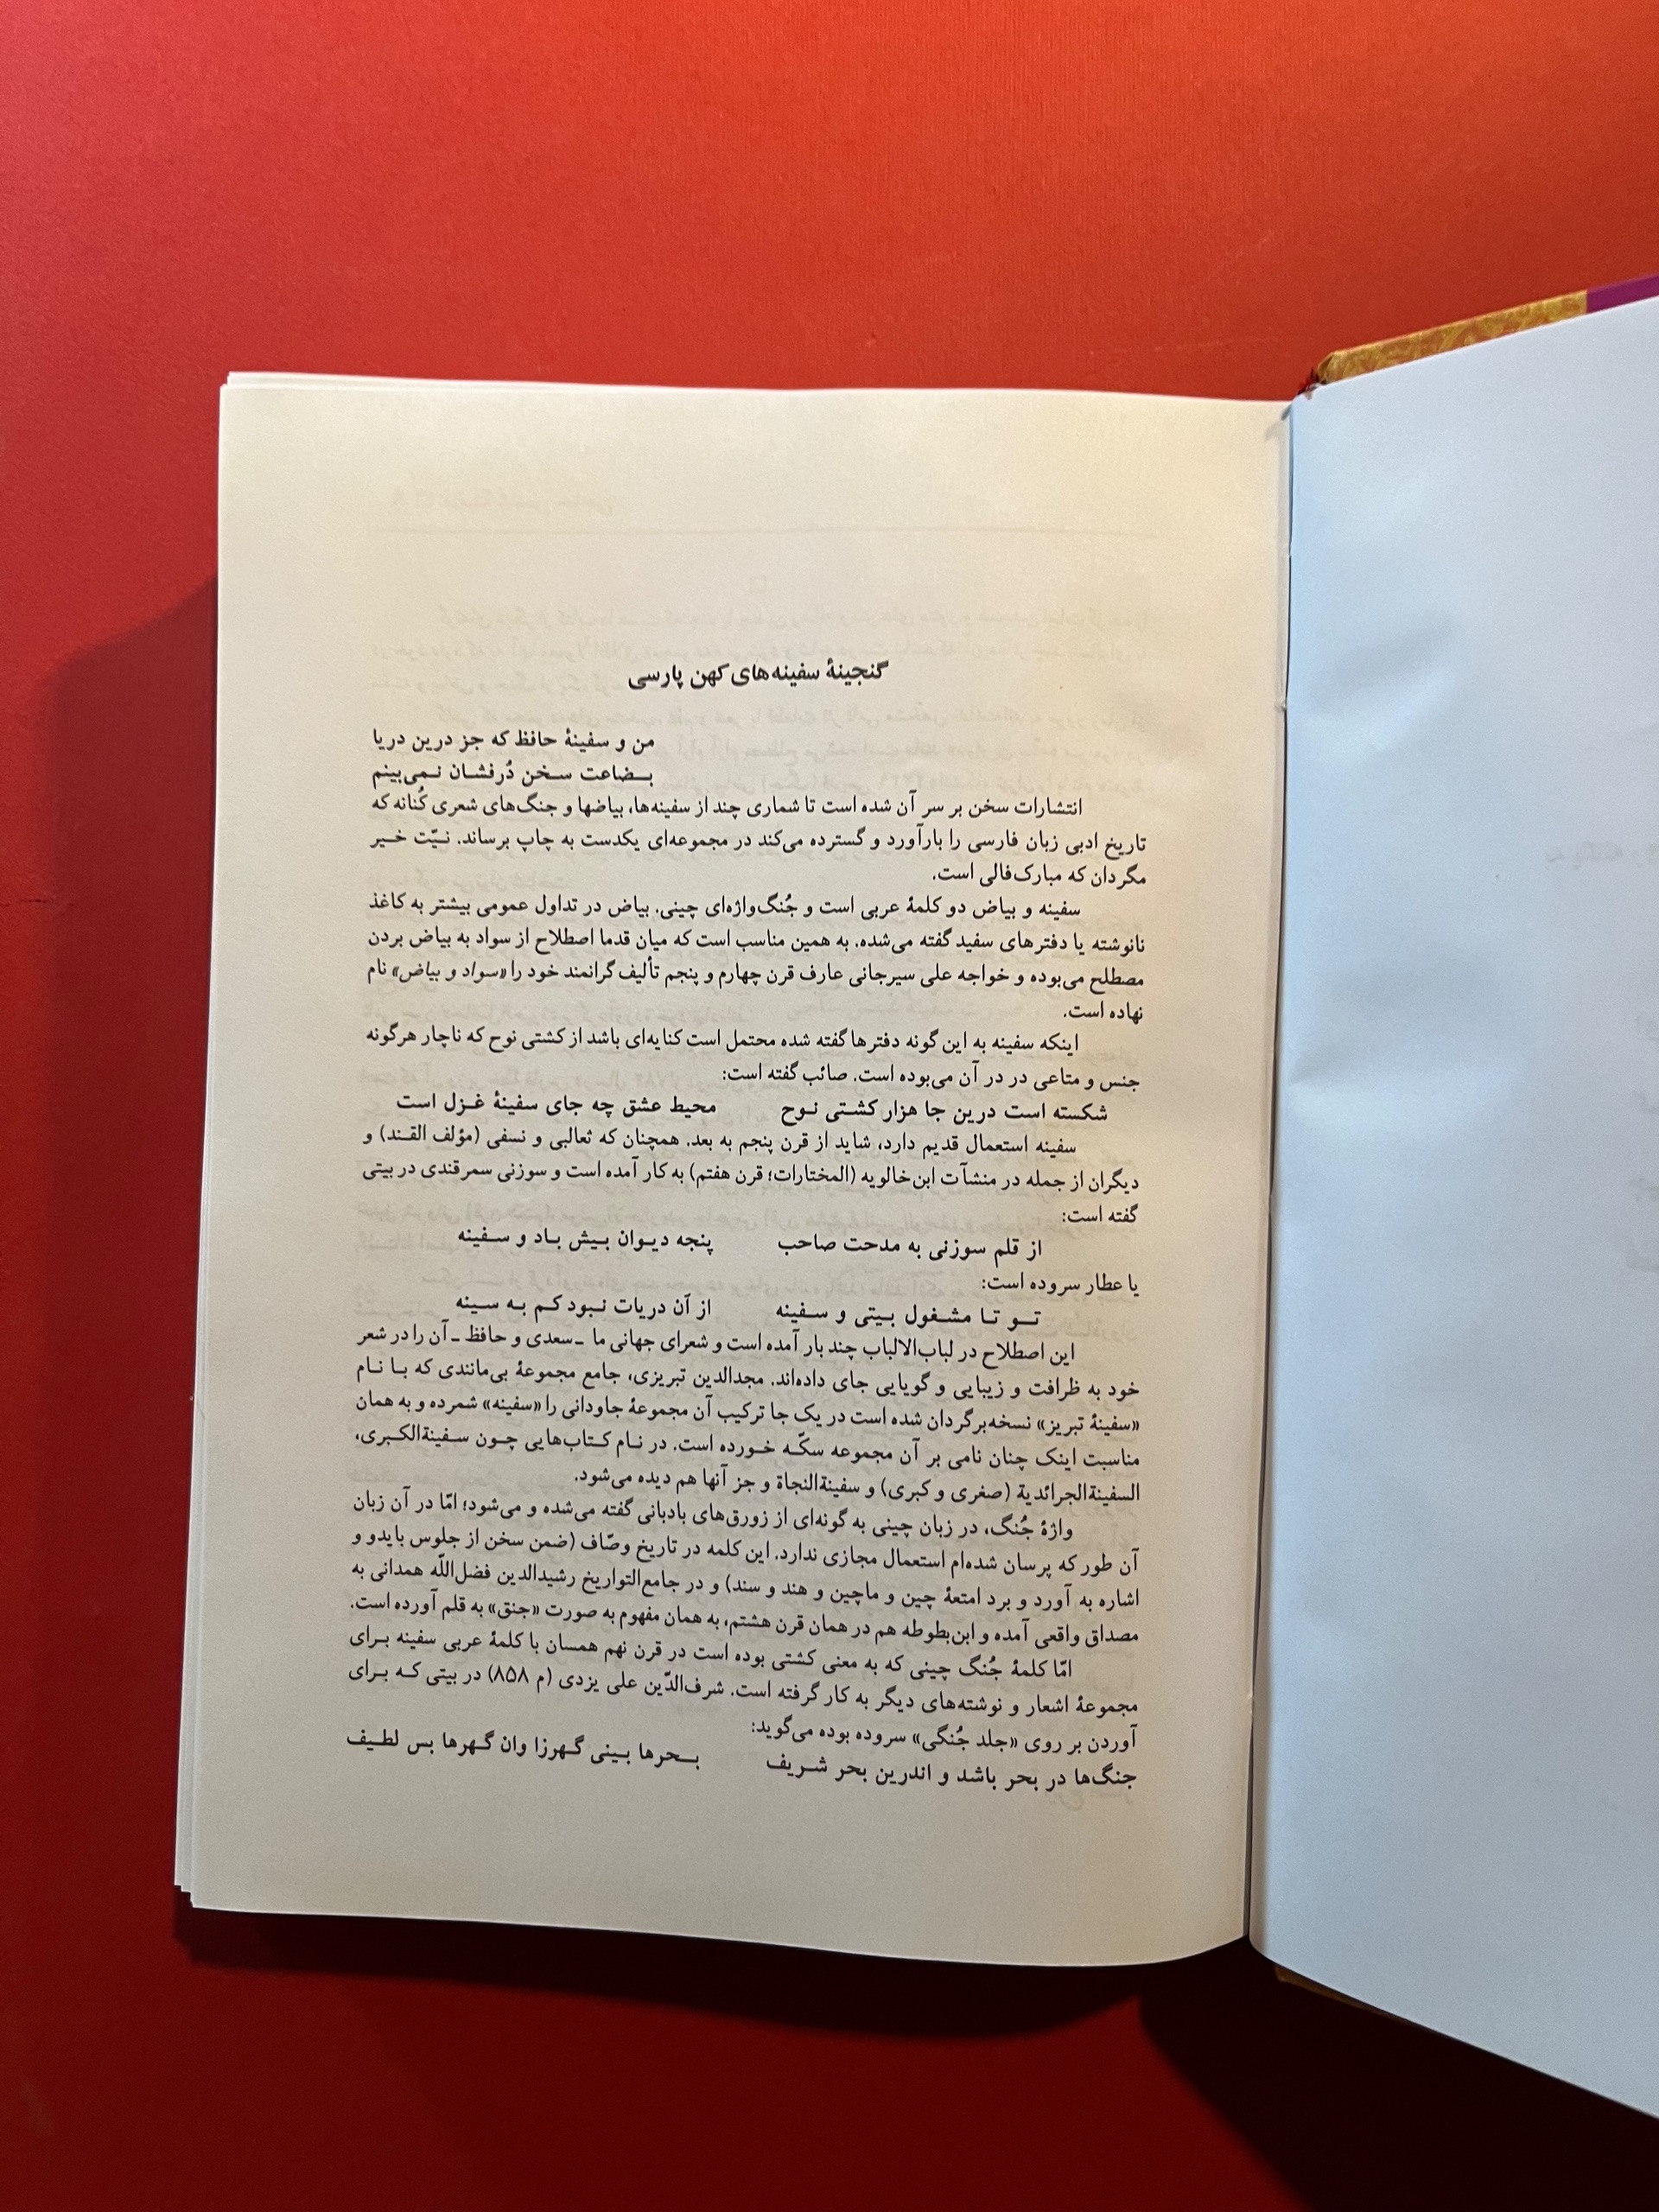 گنجینهٔ سفینه‌های کهن پارسی
من و سفینهٔ حافظ که جز درین دریا
بـضاعت سـخن دُرفشـان نـمی‌بینم
انتشارات سخن بر سر آن شده است تا شماری چند از سفینه‌ها، بیاضها و جنگ‌های شعری کُنانه که
تاریخ ادبی زبان فارسی را بارآورد و گسترده می‌کند در مجموعه‌ای یکدست به چاپ برساند. نـیّت خـیر
مگردان که مبارک‌فالی است.
سفینه و بیاض دو کلمهٔ عربی است و جُنگ‌واژه‌ای چینی. بیاض در تداول عمومی بیشتر به کاغذ
نانوشته یا دفترهای سفید گفته می‌شده. به همین مناسب است که میان قدما اصطلاح از سواد به بیاض بردن
مصطلح می‌بوده و خواجه علی سیرجانی عارف قرن چهارم و پنجم تألیف گرانمند خود را «سواد و بیاض» نام
نهاده است.
اینکه سفینه به این گونه دفترها گفته شده محتمل است کنایه‌ای باشد از کشتی نوح که ناچار هرگونه
جنس و متاعی در در آن می‌بوده است. صائب گفته است:
شکسته است درین جا هزار کشـتی نـوح محیط عشق چه جای سفینهٔ غـزل است
سفینه استعمال قدیم دارد، شاید از قرن پنجم به بعد. همچنان که ثعالبی و نسفی (مؤلف القـند) و
دیگران از جمله در منشآت ابن‌خالویه (المختارات؛ قرن هفتم) به کار آمده است و سوزنی سمرقندی در بیتی
گفته است:
از قلم سوزنی به مدحت صاحب پنجه دیـوان بـیش بـاد و سـفینه
یا عطار سروده است:
تـو تـا مشـغول بـیتی و سـفینه از آن دریات نـبود کـم بـه سـینه
این اصطلاح در لباب‌الالباب چند بار آمده است و شعرای جهانی ما ـ سعدی و حافظ ـ آن را در شعر
خود به ظرافت و زیبایی و گویایی جای داده‌اند. مجدالدین تبریزی، جامع مجموعهٔ بی‌مانندی که بـا نـام
«سفینهٔ تبریز» نسخه‌برگردان شده است در یک جا ترکیب آن مجموعهٔ جاودانی را «سفینه» شمرده و به همان
مناسبت اینک چنان نامی بر آن مجموعه سکّـه خـورده است. در نـام کـتاب‌هایی چـون سـفینةالکـبری،
السفینةالجرائدیة (صغری و کبری) و سفینةالنجاة و جز آنها هم دیده می‌شود.
واژهٔ جُنگ، در زبان چینی به گونه‌ای از زورق‌های بادبانی گفته می‌شده و می‌شود؛ امّا در آن زبان
آن طور که پرسان شده‌ام استعمال مجازی ندارد. این کلمه در تاریخ وصّاف (ضمن سخن از جلوس بایدو و
اشاره به آورد و برد امتعهٔ چین و ماچین و هند و سند) و در جامع‌التواریخ رشیدالدین فضل‌اللّه همدانی به
مصداق واقعی آمده و ابن‌بطوطه هم در همان قرن هشتم، به همان مفهوم به صورت «جنق» به قلم آورده است.
امّا کلمهٔ جُنگ چینی که به معنی کشتی بوده است در قرن نهم همسان با کلمهٔ عربی سفینه بـرای
مجموعهٔ اشعار و نوشته‌های دیگر به کار گرفته است. شرف‌الدّین علی یزدی (م ۸۵۸) در بیتی کـه بـرای
آوردن بر روی «جلد جُنگی» سروده بوده می‌گوید:
جنگ‌ها در بحر باشد و اندرین بحر شـریف بـحرها بـینی گـهرزا وان گـهرها بس لطـیف